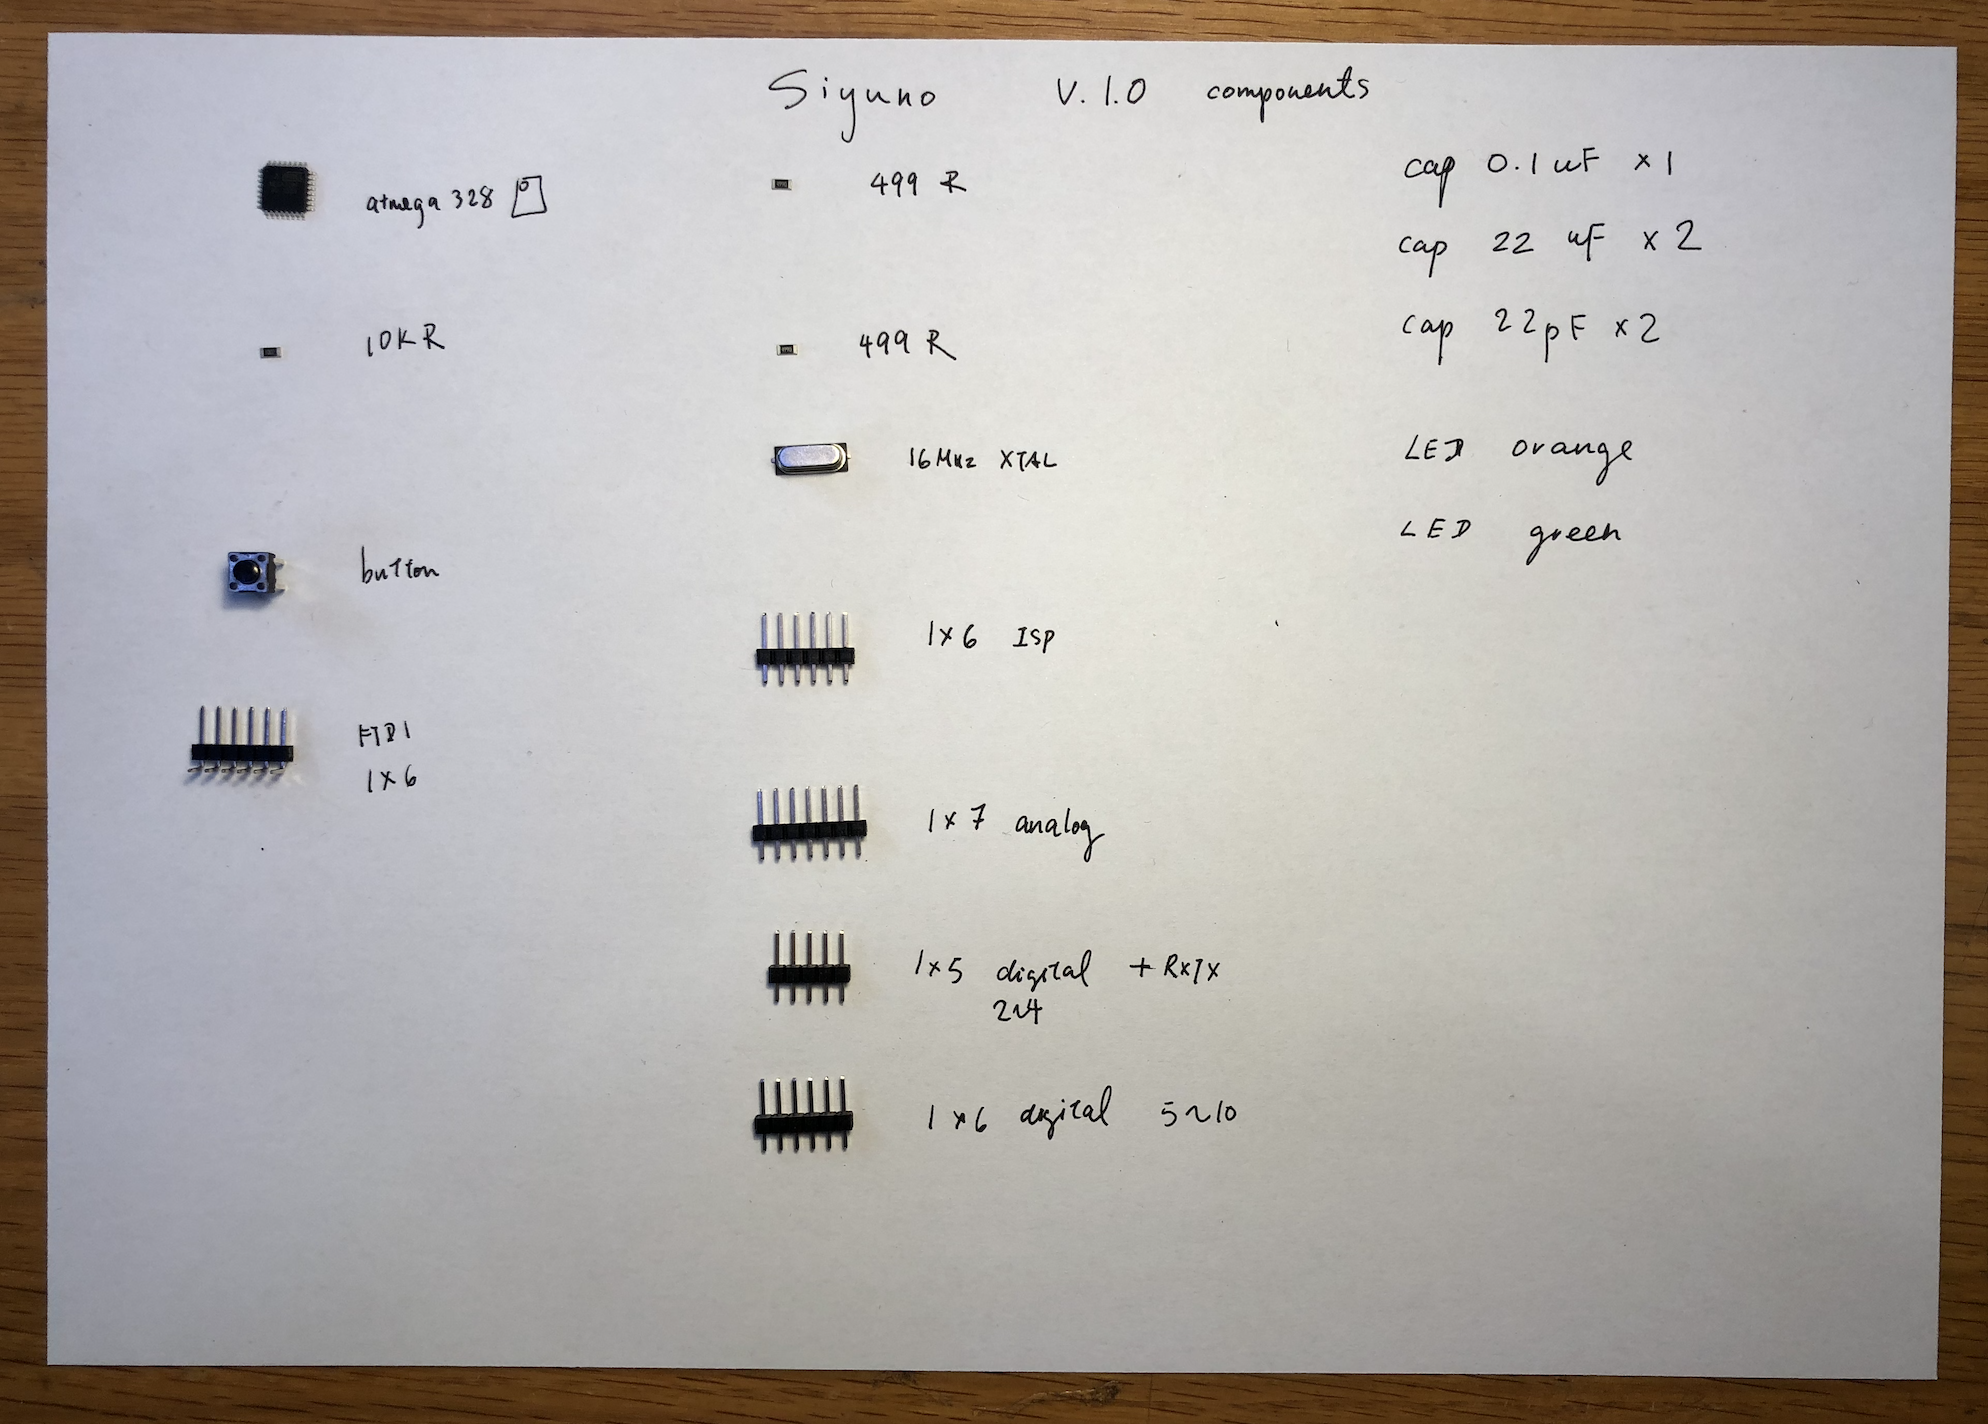 Siyuno V. 1.0 components
atmega 328
10K R
button
FTDI
1x6
499 R
499 R
16MHz XTAL
1x6 ISP
1x7 analog
1x5 digital + RxTx
2~4
1x6 digital 5~10
cap 0.1 uF x1
cap 22 uF x2
cap 22pF x2
LED orange
LED green